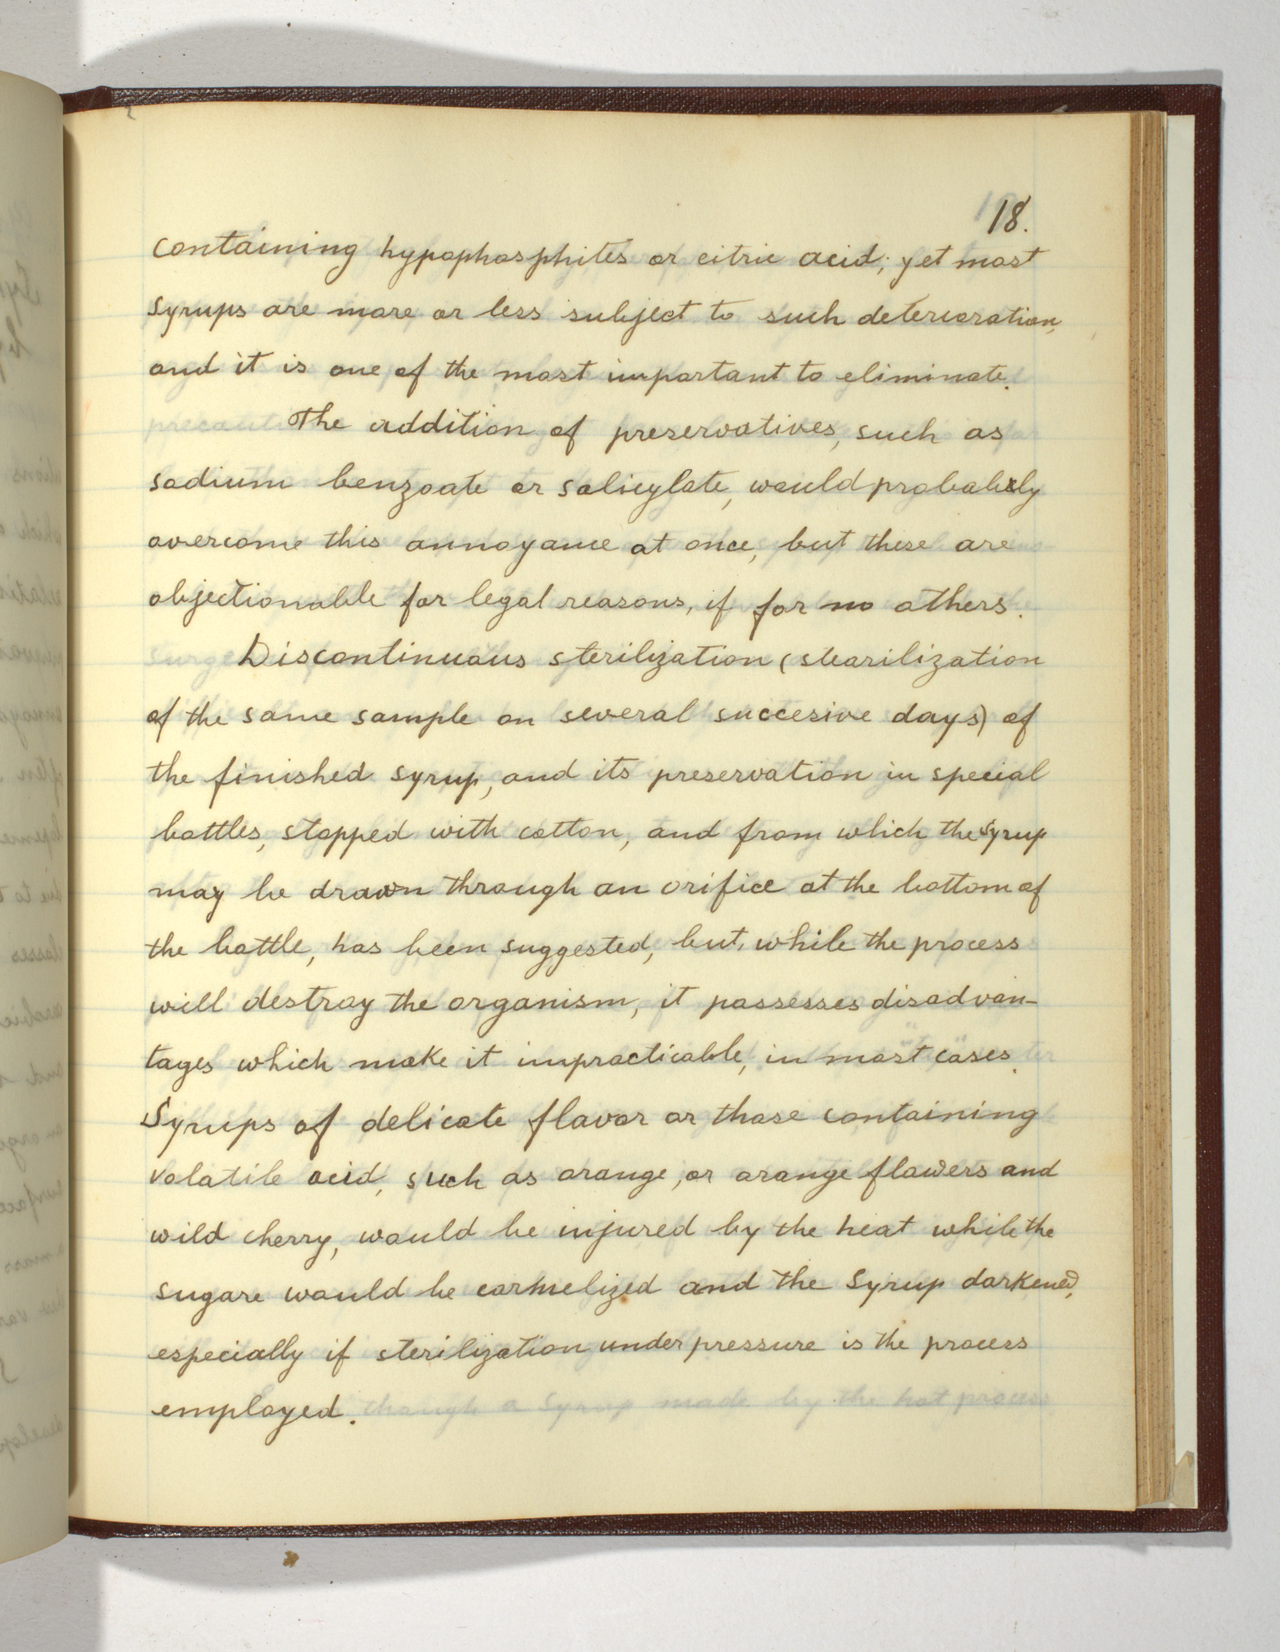 18.
containing hypophosphites or citric acid; yet most
syrups are more or less subject to such deterioration,
and it is one of the most important to eliminate.
The addition of preservatives, such as
sodium benzoate or salicylate, would probably
overcome this annoyance at once, but these are
objectionable for legal reasons, if for no others.
Discontinuous sterilization (stearilization
of the same sample on several succesive days) of
the finished syrup, and its preservation in special
bottles, stopped with cotton, and from which the syrup
may be drawn through an orifice at the bottom of
the bottle, has been suggested, but, while the process
will destroy the organism, it possesses disadvan-
tages which make it impracticable, in most cases.
Syrups of delicate flavor or those containing
volatile acid, such as orange, or orange flowers and
wild cherry, would be injured by the heat while the
sugare would be carmelized and the syrup darkened,
especially if sterilization under pressure is the process
employed.